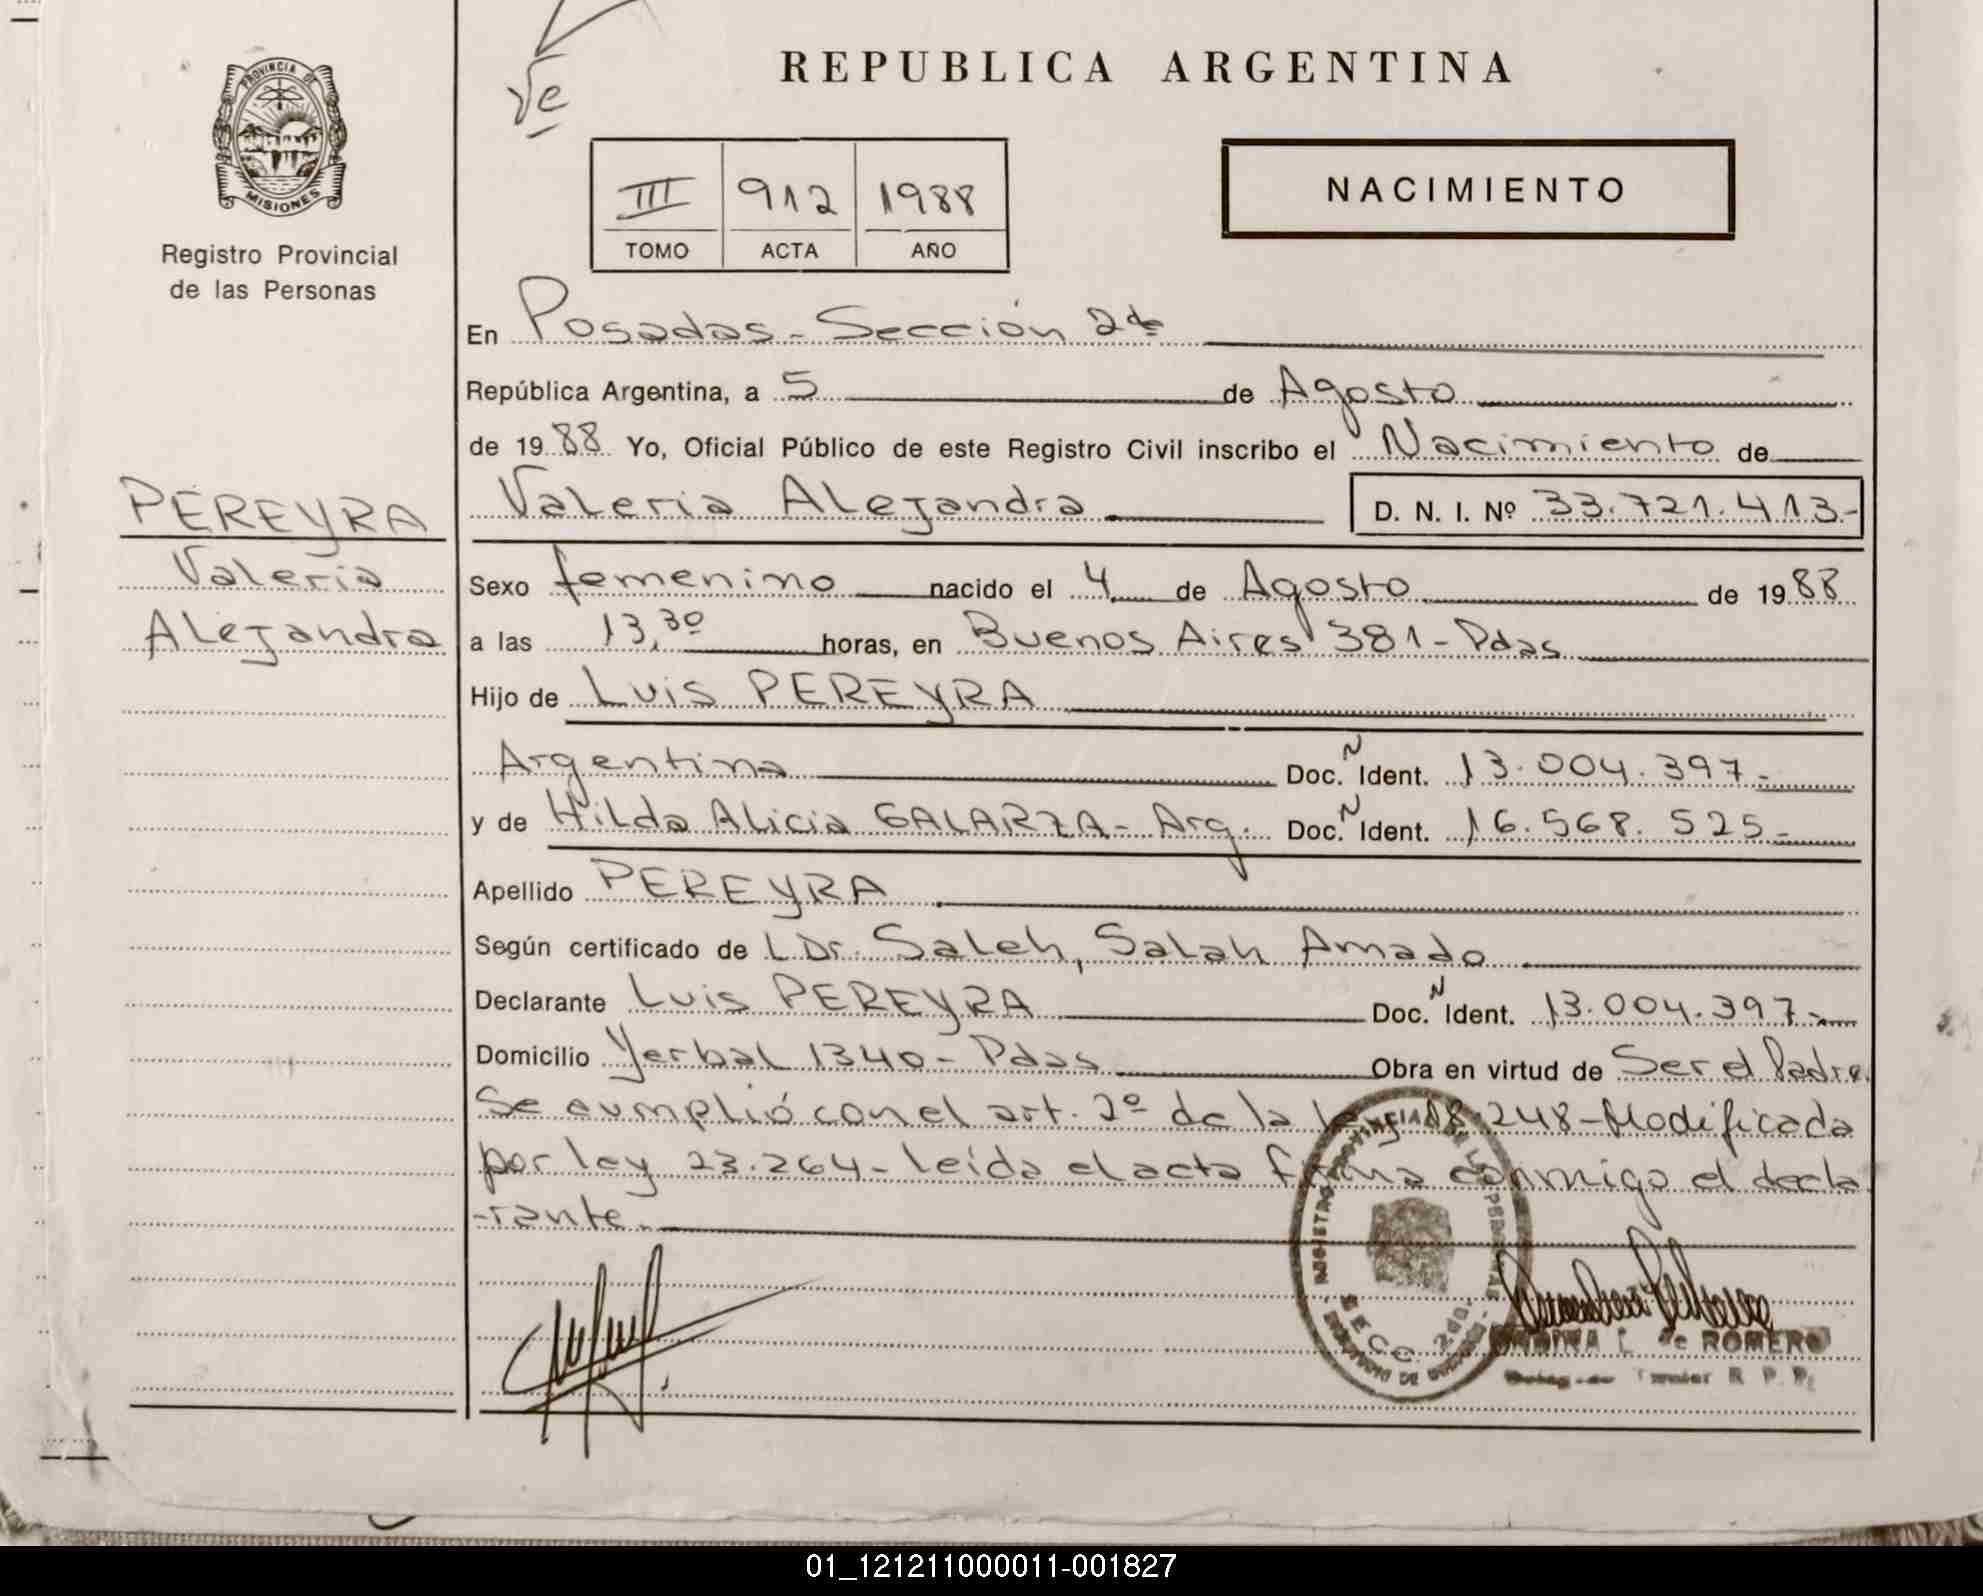 REPUBLICA ARGENTINA
PROVINCIA DE
MISIONES
Registro Provincial
de las Personas
III 912 1988
TOMO ACTA AÑO
NACIMIENTO
En Posadas - Sección 2da
República Argentina, a 5 de Agosto
de 1988 Yo, Oficial Público de este Registro Civil inscribo el Nacimiento de
PEREYRA
Valeria
Alejandra
Valeria Alejandra D. N. I. Nº 33.721.413-
Sexo femenino nacido el 4 de Agosto de 1988
a las 13,30 horas, en Buenos Aires 381 - Pdas
Hijo de Luis PEREYRA
Argentina Doc. N Ident. 13.004.397-
y de Hilda Alicia GALARZA - Arg. Doc. N Ident. 16.568.525-
Apellido PEREYRA
Según certificado de L Dr. Saleh, Salah Amado
Declarante Luis PEREYRA Doc. N Ident. 13.004.397-
Domicilio Yerbal 1340 - Pdas Obra en virtud de Ser el Padre.
Se cumplió con el art. 2º de la ley 18.248 - Modificada
por ley 23.264 - leída el acta firma conmigo el decla
-rante.
REGISTRO PROVINCIAL DE LAS PERSONAS
SECC. 2da.
L. de ROMERO
Titular R. P. P.
01_121211000011-001827